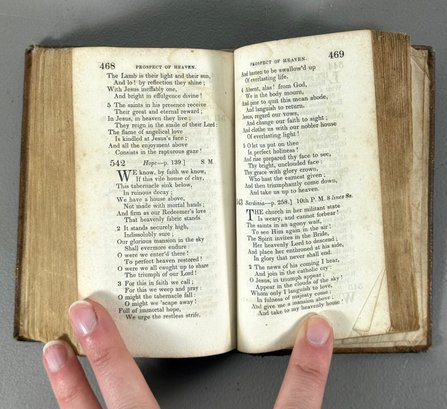 468 PROSPECT OF HEAVEN.
The Lamb is their light and their sun,
And lo! by reflection they shine;
With Jesus ineffably one,
And bright in effulgence divine!
5 The saints in his presence receive
Their great and eternal reward;
In Jesus, in heaven they live;
They reign in the smile of their Lord:
The flame of angelical love
Is kindled at Jesus's face;
And all the enjoyment above
Consists in the rapturous gaze!
542 Hope—p. 139.] S. M.
WE know, by faith we know,
If this vile house of clay,
This tabernacle sink below,
In ruinous decay;
We have a house above,
Not made with mortal hands;
And firm as our Redeemer's love
That heavenly fabric stands
2 It stands securely high,
Indissolubly sure;
Our glorious mansion in the sky
Shall evermore endure:
O were we enter'd there!
To perfect heaven restored!
O were we all caught up to share
The triumph of our Lord!
3 For this in faith we call;
For this we weep and pray:
O might the tabernacle fall:
O might we 'scape away!
Full of immortal hope,
We urge the restless strife,
PROSPECT OF HEAVEN. 469
And hasten to be swallow'd up
Of everlasting life.
4 Absent, alas! from God,
We in the body mourn,
And pine to quit this mean abode,
And languish to return.
Jesus, regard our vows,
And change our faith to sight;
And clothe us with our nobler house
Of everlasting light!
5 O let us put on thee
In perfect holiness!
And rise prepared thy face to see,
Thy bright, unclouded face:
Thy grace with glory crown,
Who hast the earnest given;
And then triumphantly come down,
And take us up to heaven.
43 Sardinia—p. 258.] 10th P. M. 8 lines 8s.
THE church in her militant state
Is weary, and cannot forbear!
The saints in an agony wait,
To see Him again in the air!
The Spirit invites in the Bride,
Her heavenly Lord to descend,
And place her enthroned at his side,
In glory that never shall end.
2 The news of his coming I hear,
And join in the catholic cry:
O Jesus, in triumph appear;
Appear in the clouds of the sky!
Whom only I languish to love,
In fulness of majesty come;
And give me a mansion above;
And take to my heavenly home!